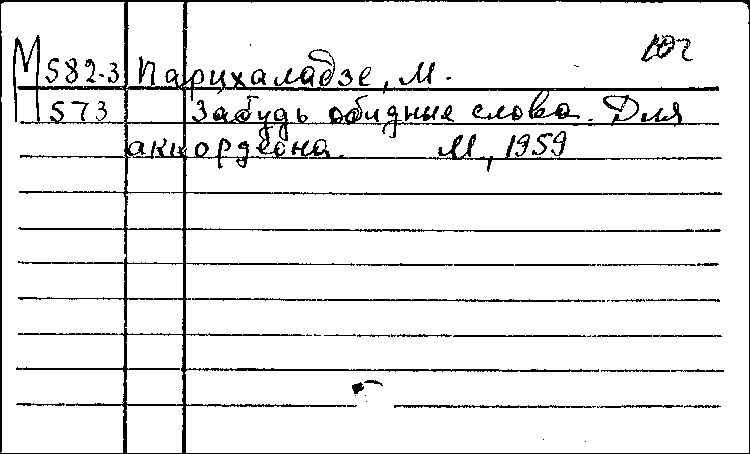 М 582-3 Парцхаладзе, М.
573 Забудь обидные слова. Для
аккордеона. М., 1959